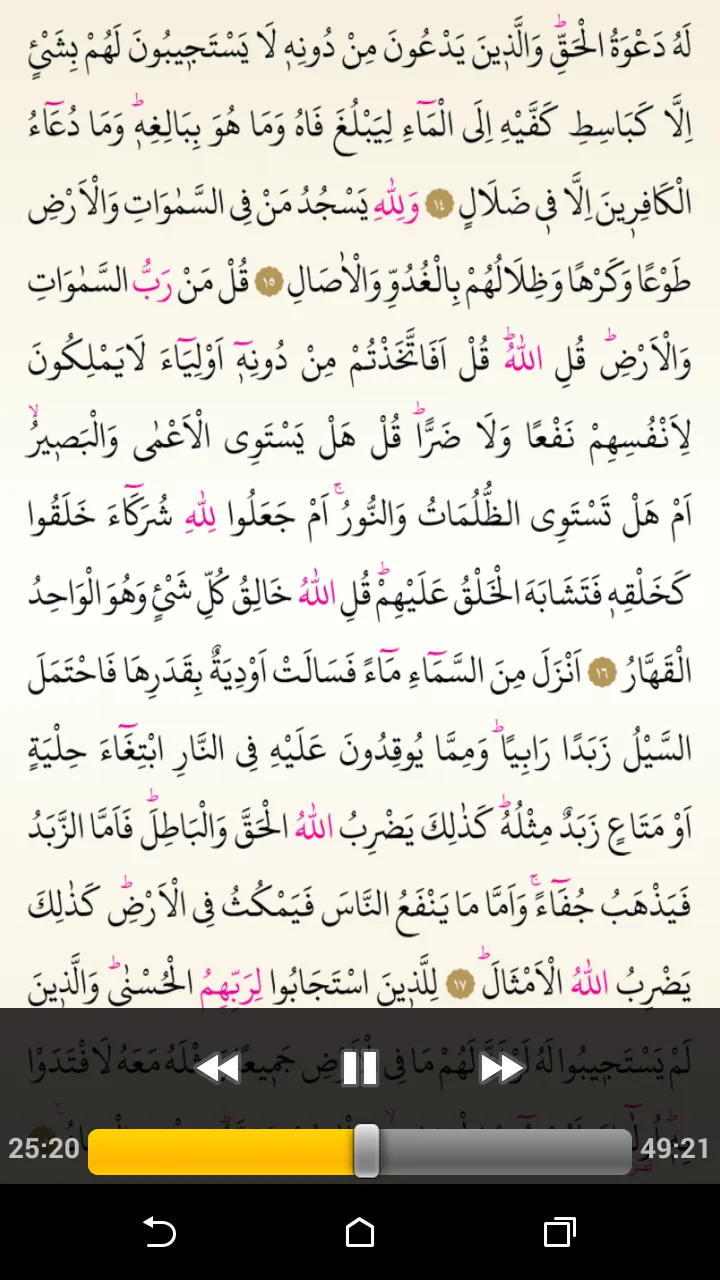 لَهُ دَعْوَةُ الْحَقِّۜ وَالَّذ۪ينَ يَدْعُونَ مِنْ دُونِه۪ لَا يَسْتَج۪يبُونَ لَهُمْ بِشَيْءٍ
اِلَّا كَبَاسِطِ كَفَّيْهِ اِلَى الْمَٓاءِ لِيَبْلُغَ فَاهُ وَمَا هُوَ بِبَالِغِه۪ۜ وَمَا دُعَٓاءُ
الْكَافِر۪ينَ اِلَّا ف۪ي ضَلَالٍ ١٤ وَلِلّٰهِ يَسْجُدُ مَنْ فِي السَّمٰوَاتِ وَالْاَرْضِ
طَوْعًا وَكَرْهًا وَظِلَالُهُمْ بِالْغُدُوِّ وَالْاٰصَالِ ١٥ قُلْ مَنْ رَبُّ السَّمٰوَاتِ
وَالْاَرْضِۜ قُلِ اللّٰهُۜ قُلْ اَفَاتَّخَذْتُمْ مِنْ دُونِه۪ٓ اَوْلِيَٓاءَ لَا يَمْلِكُونَ
لِاَنْفُسِهِمْ نَفْعًا وَلَا ضَرًّاۜ قُلْ هَلْ يَسْتَوِى الْاَعْمٰى وَالْبَص۪يرُۙ
اَمْ هَلْ تَسْتَوِى الظُّلُمَاتُ وَالنُّورُۚ اَمْ جَعَلُوا لِلّٰهِ شُرَكَٓاءَ خَلَقُوا
كَخَلْقِه۪ فَتَشَابَهَ الْخَلْقُ عَلَيْهِمْۜ قُلِ اللّٰهُ خَالِقُ كُلِّ شَيْءٍ وَهُوَ الْوَاحِدُ
الْقَهَّارُ ١٦ اَنْزَلَ مِنَ السَّمَٓاءِ مَٓاءً فَسَالَتْ اَوْدِيَةٌ بِقَدَرِهَا فَاحْتَمَلَ
السَّيْلُ زَبَدًا رَابِيًاۜ وَمِمَّا يُوقِدُونَ عَلَيْهِ فِى النَّارِ ابْتِغَٓاءَ حِلْيَةٍ
اَوْ مَتَاعٍ زَبَدٌ مِثْلُهُۜ كَذٰلِكَ يَضْرِبُ اللّٰهُ الْحَقَّ وَالْبَاطِلَۜ فَاَمَّا الزَّبَدُ
فَيَذْهَبُ جُفَٓاءًۚ وَاَمَّا مَا يَنْفَعُ النَّاسَ فَيَمْكُثُ فِى الْاَرْضِۜ كَذٰلِكَ
يَضْرِبُ اللّٰهُ الْاَمْثَالَۜ ١٧ لِلَّذ۪ينَ اسْتَجَابُوا لِرَبِّهِمُ الْحُسْنٰىۜ وَالَّذ۪ينَ
لَمْ يَسْتَج۪يبُوا لَهُ لَهُمْ مَا فِى جَم۪يعًا مَعَهُ لَافْتَدَوْا
25:20 49:21